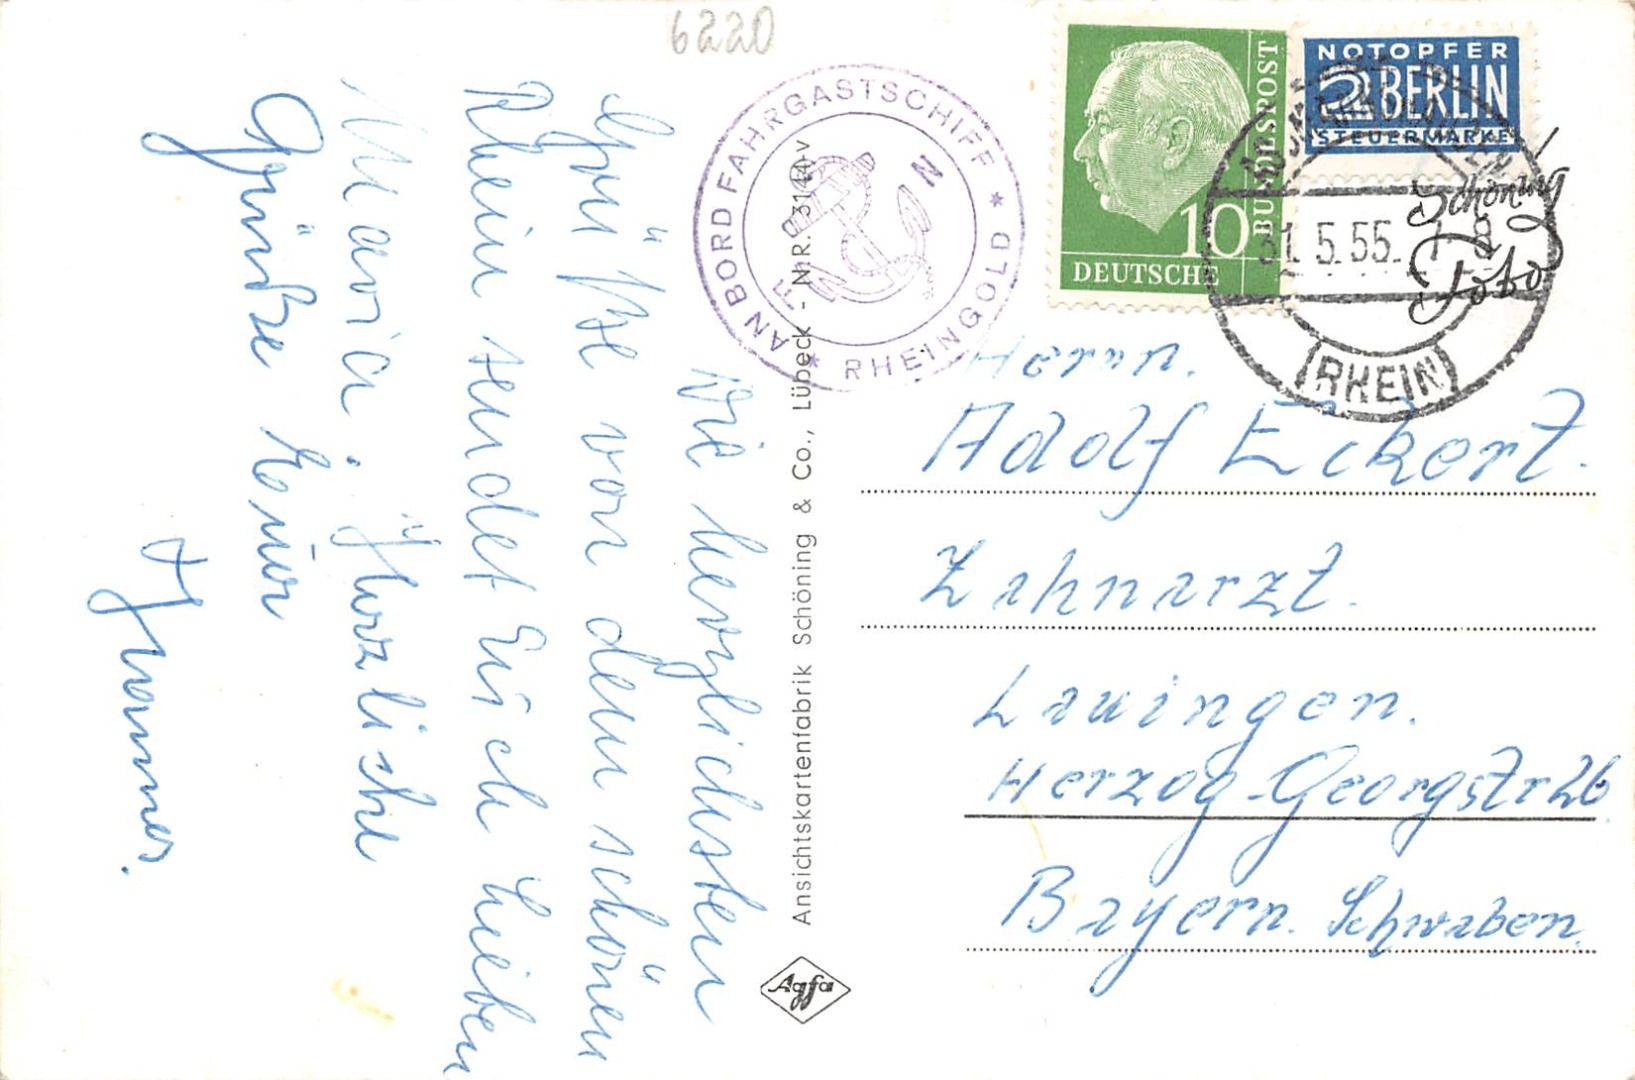 6220
AN BORD FAHRGASTSCHIFF * RHEINGOLD *
F N
DEUTSCHE
BUNDESPOST
10
NOTOPFER
2 BERLIN
STEUERMARKE
5.55. - 8
(RHEIN)
Schöning
Foto
Ansichtskartenfabrik Schöning & Co., Lübeck - NR. 3144 v
Agfa
Die herzlichsten
Grüße von dem schönen
Rhein sendet Euch lieben
Maria. Herzliche
Grüße Euer
Herrn.
Adolf Eckert.
Zahnarzt.
Lauingen.
Herzog-Georgstr 26
Bayern. Schwaben.